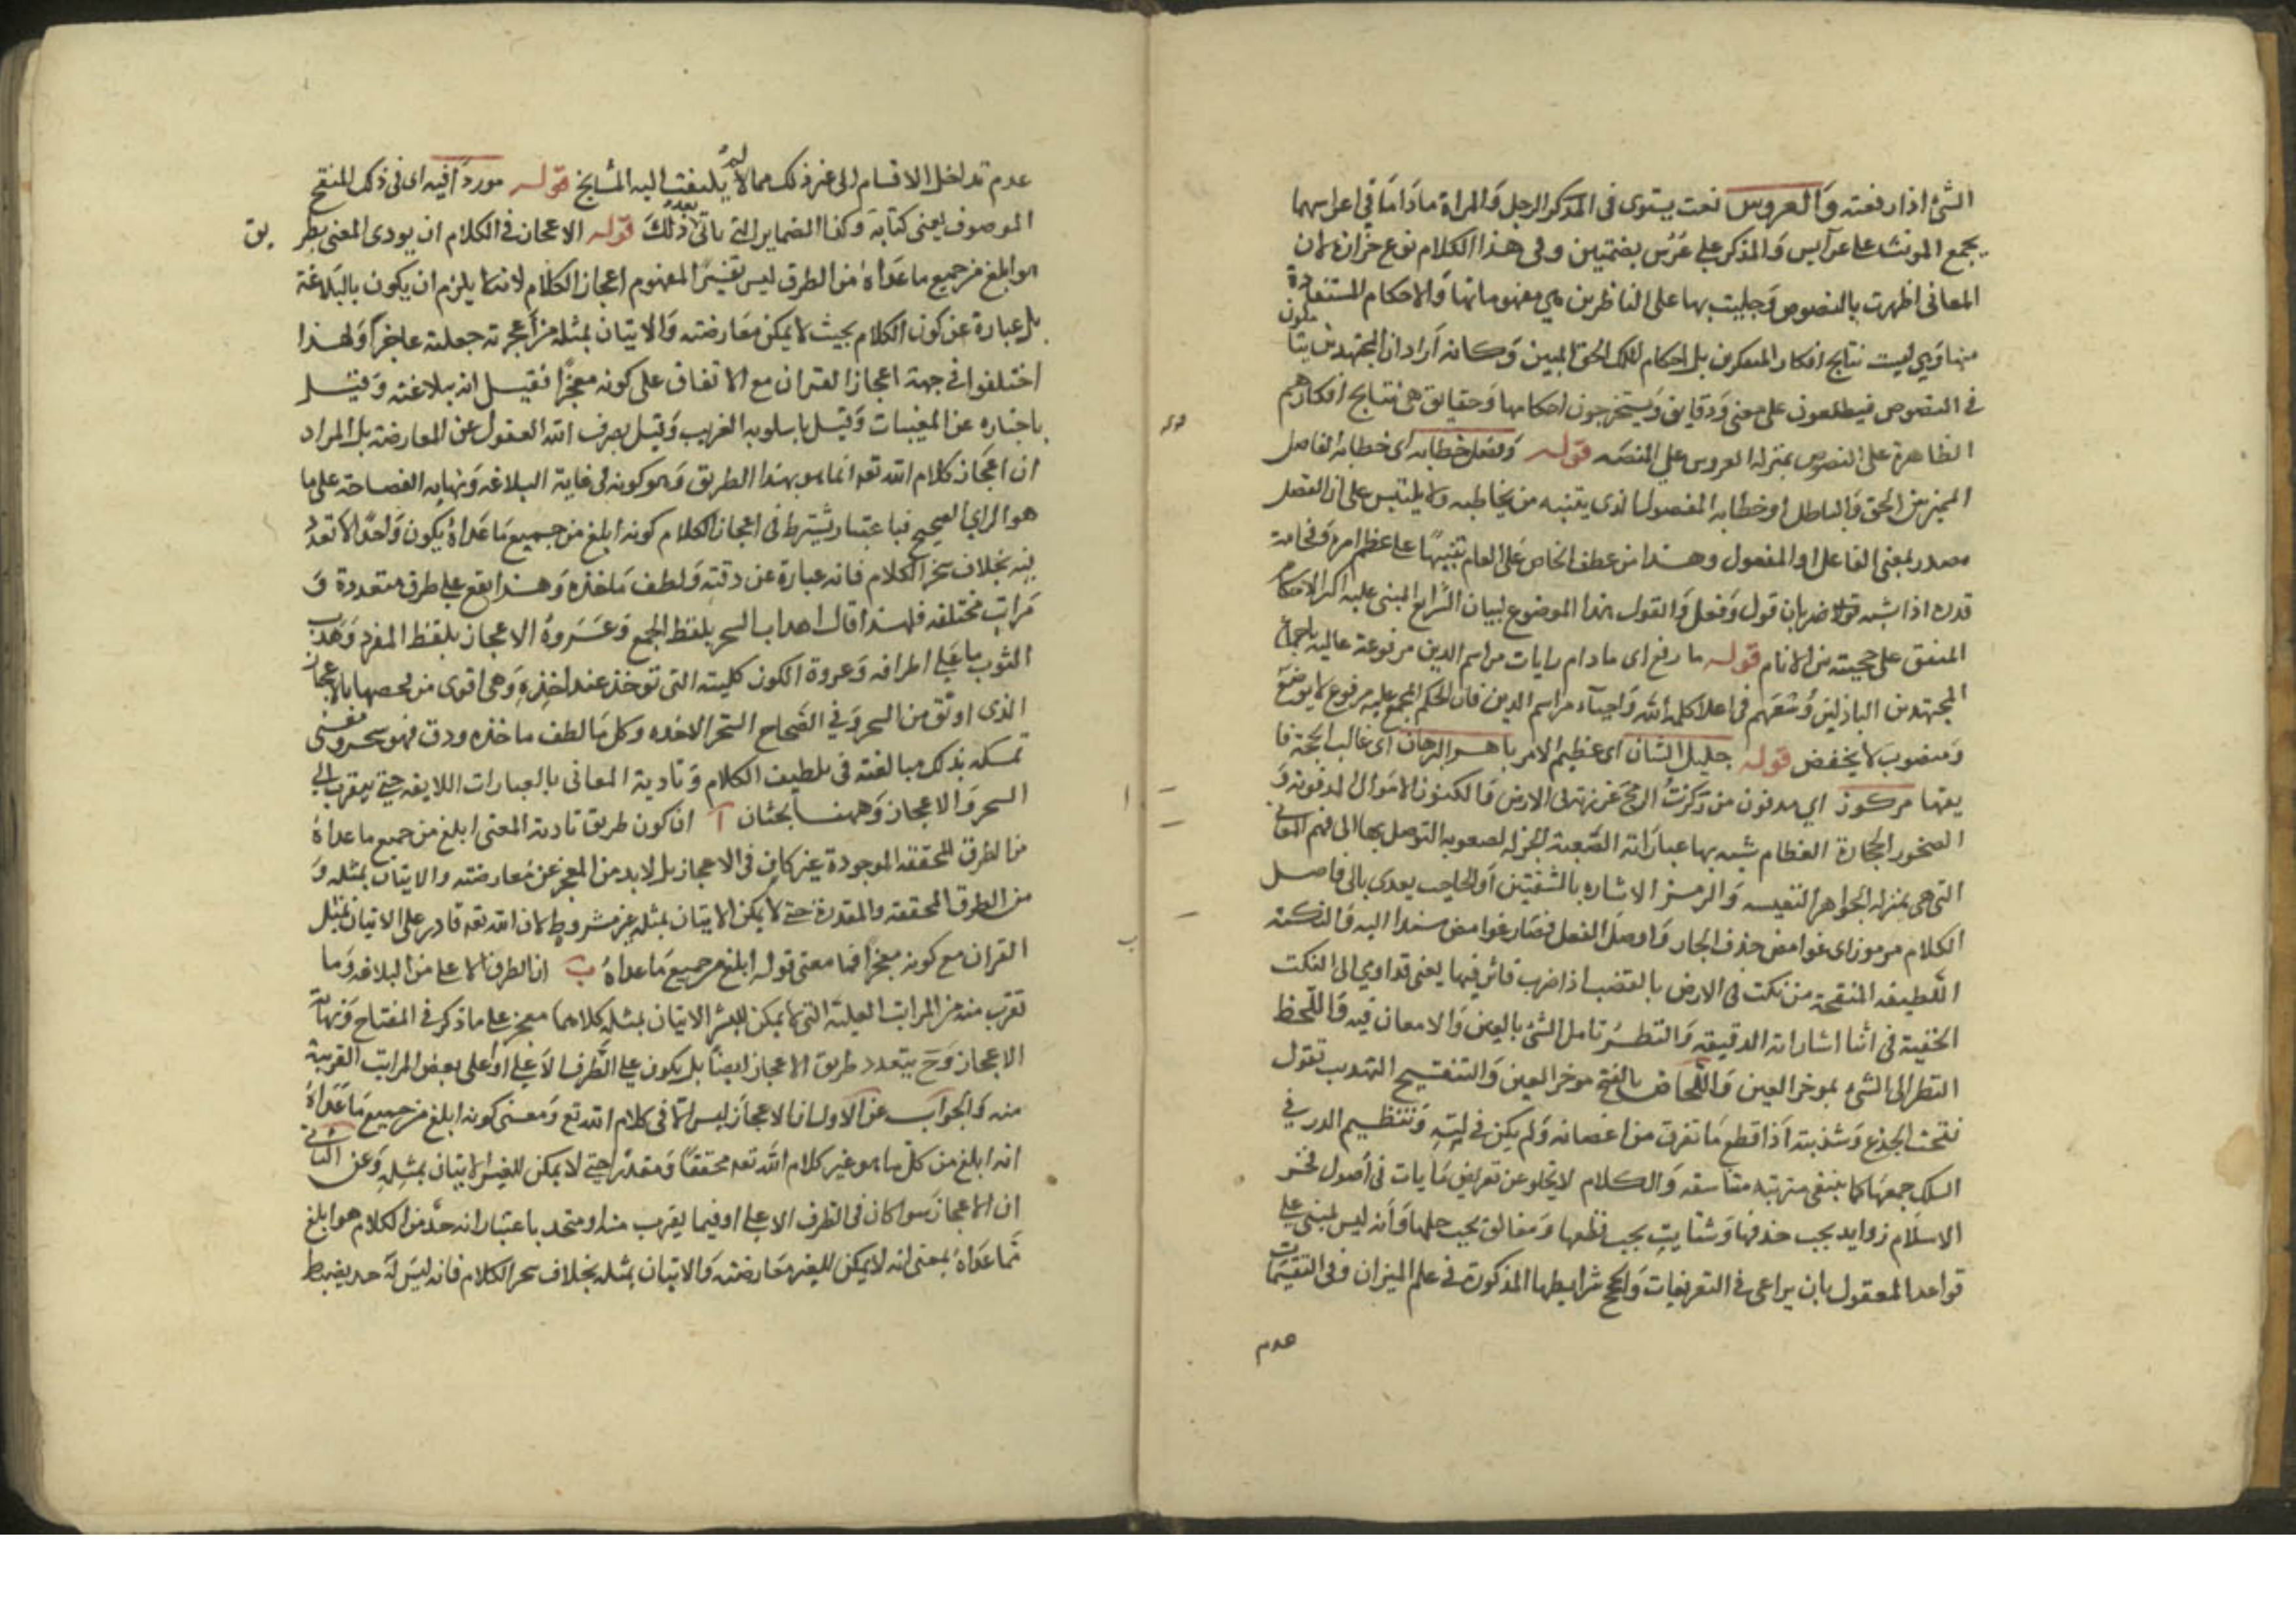 الشئ اذا رفعته والعروس نعت يستوى فى المذكر الرجل والمراة ماداما فى اعراسهما
يجمع المونث على عرآيس والمذكر على عرس بضمتين وفى هذا الكلام نوع خزازة لان
المعانى اظهرت بالنصوص وجليت بها على الناظرين هى مفهوماتها والاحكام المستنفادة
منها وهى ليست نتايج افكار المتفكرين بل احكام الملك الحق المبين وكانه اراد ان المجتهدين يتاملون
فى النصوص فيطلعون على معنى ودقايق ويستخرجون احكامها وحقايق هى نتايج افكارهم
الظاهرة على النصوص بمنزلة العروس على المنصه قوله وفصل خطابه اى خطابه الفاصل
المميز بين الحق والباطل او خطابه المفصول الذى يتبينه من يخاطب به ولا يلتبس على ان الفصل
مصدر بمعنى الفاعل او المفعول وهذا من عطف الخاص على العام تنبيها على عظم امره وفخامة
قدره اذا شبه قوله ضربان قول وفعل والقول هذا الموضوع لبيان الشرايع المبنى عليه اكثر الاحكام
المتفق على حجيته بين الانام قوله ما رفع اى مادام رايات مراسم الدين مرفوعة عاليه باجماع
المجتهدين الباذلين وسعهم فى اعلا كلمة الله واحيآء مراسم الدين فان الحكم المجمع عليه مرفوع لا يوضع
ومنصوب لا يخفض قوله جليل الشان اى عظيم الامر باهر البرهان اى غالب الحجة فا
يقها مركوز اي مدفون من ركزت الرمح غرزته فى الارض والكنوز الاموال المدفونة و
الصخور الحجارة العظام شبه بها عباراته الصعبة الجزلة لصعوبة التوصل بها الى فهم المعانى
التى هى بمنزلة الجواهر النفيسه والرمز الاشاره بالشفتين او الحاجب يعدى بالى فاصل
الكلام مرموز اى غوامض حذف الجار واوصل الفعل فصار غوامض مسندا اليه والنكتة
اللطيفه المنقحة من نكت فى الارض بالقضب اذا ضرب فاثر فيها يعنى قد اومى الى النكت
الخفية فى اثنا اشاراته الدقيقه والنظر تامل الشئ بالعين والامعان فيه واللحظ
النظر الى الشئ بموخر العين واللحاظ بالفتح موخر العين والتنقيح التهذيب تقول
نقحت الجذع وشذبته اذا قطع ما تفرق من اغصانه ولم يكن فى لبه وتنظيم الدرر فى
السلك جمعها كما ينبغى مترتبه متناسقه والكلام لا يخلو عن تعريض ما بان فى اصول فخر
الاسلام زوايد يجب حذفها وشتايت يجب نظمها ومغالق يجب حلها وانه ليس لمبنى على
قواعد المعقول بان يراعى فى التعريفات والحجج شرايطها المذكورة فى علم الميزان وفى التقسيمات
عدم
عدم تداخل الاقسام الى غير ذلك مما لا يلتفت اليه المشايخ قوله موردا فيه اى فى ذلك المنقح
الموصوف يعنى كتابه وكذا الضماير التى ياتى بعد ذلك قوله الاعجاز فى الكلام ان يودى المعنى بطريق
هو ابلغ من جميع ما عداه من الطرق ليس تفسيرا لمفهوم اعجاز الكلام لانه لا يلزم ان يكون بالبلاغة
بل عبارة عن كون الكلام بحيث لا يمكن معارضته والاتيان بمثله من اعجزته جعلته عاجزا ولهذا
اختلفوا فى جهة اعجاز القران مع الاتفاق على كونه معجزا فقيل انه ببلاغته وقيل
باخباره عن المغيبات وقيل باسلوبه الغريب وقيل بصرف الله العقول عن المعارضة بل المراد
ان اعجاز كلام الله تعه انما هو بهذا الطريق وهو كونه فى غاية البلاغه ونهاية الفصاحة على ما
هو الراي الصحيح فباعتبار يشترط فى اعجاز الكلام كونه ابلغ من جميع ما عداه يكون واحدا لا تعدد
فيه بخلاف سحر الكلام فانه عبارة عن دقته ولطف ماخذه وهذا يقع على طرق متعددة و
مراتب مختلفه فلهذا قال اهداب السحر بلفظ الجمع وعروة الاعجاز بلفظ المفرد وهدب
الثوب ما على اطرافه وعروة الكوز كليته التى توخذ عند اخذه وهى اقوى من فخصها بالاعجاز
الذى اوثق من السحر وفى الصحاح السحر الاخذه وكل ما لطف ماخذه ودق فهو سحر ومعنى
تمسكه بذلك مبالغته فى تلطيف الكلام وتادية المعانى بالعبارات اللايقه حتى يتقرب الى
السحر والاعجاز وههنا بحثان آ ان كون طريق تادية المعنى ابلغ من جميع ما عداه
من الطرق المحققه الموجودة غير كاف فى الاعجاز بل لابد من العجز عن معارضته والاتيان بمثله و
من الطرق المحققة والمقدرة حتى لا يمكن الاتيان بمثله غير مشروط لان الله تعه قادر على الاتيان بمثل
القران مع كونه معجزا فما معنى قوله ابلغ من جميع ما عداه ب ان الطرف الاعلى من البلاغه وما
تقرب منه من المراتب العلية التى لا يمكن للبشر الاتيان بمثله كلاهما معجز على ما ذكر فى المفتاح ونهاية
الاعجاز وح يتعدد طريق الاعجاز ايضا بل يكون على الطرف الاعلى او على بعض المراتب القريبة
منه والجواب عن الاول ان الاعجاز ليس الا فى كلام الله تع ومعنى كونه ابلغ من جميع ما عداه
انه ابلغ من كل ما هو غير كلام الله تعه محققا ومقدرا حتى لا يمكن للغير الاتيان بمثله وعن الثانى
ان الاعجاز سوا كان فى الطرف الاعلى او فيما يقرب منه او متحد باعتبار انه حد من الكلام هو ابلغ
مما عداه بمعنى انه لا يمكن للغير معارضته والاتيان بمثله بخلاف سحر الكلام فانه ليس له حد يضبط